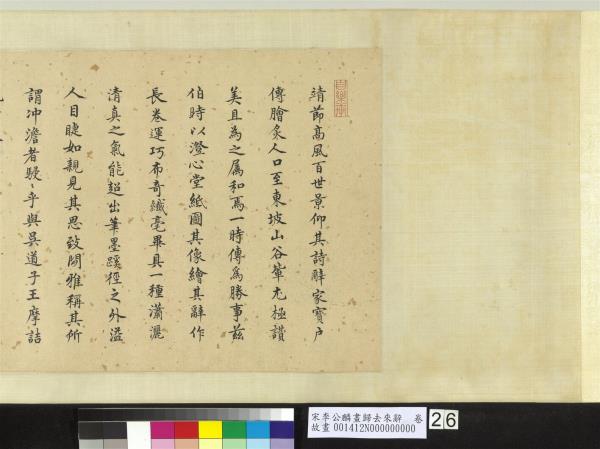 靖節高風百世景仰其詩辭家寶戶
傳膾炙人口至東坡山谷輩尤極讚
美且為之屬和焉一時傳為勝事茲
伯時以澄心堂紙圖其像繪其辭作
長卷運巧布奇纖毫畢具一種瀟灑
清真之氣能超出筆墨蹊徑之外溢
人目睫如親見其思致閒雅稱其所
謂冲澹者駸〻乎與吳道子王摩詰
宋李公麟畫歸去來辭 卷
故畫 001412N000000000
26